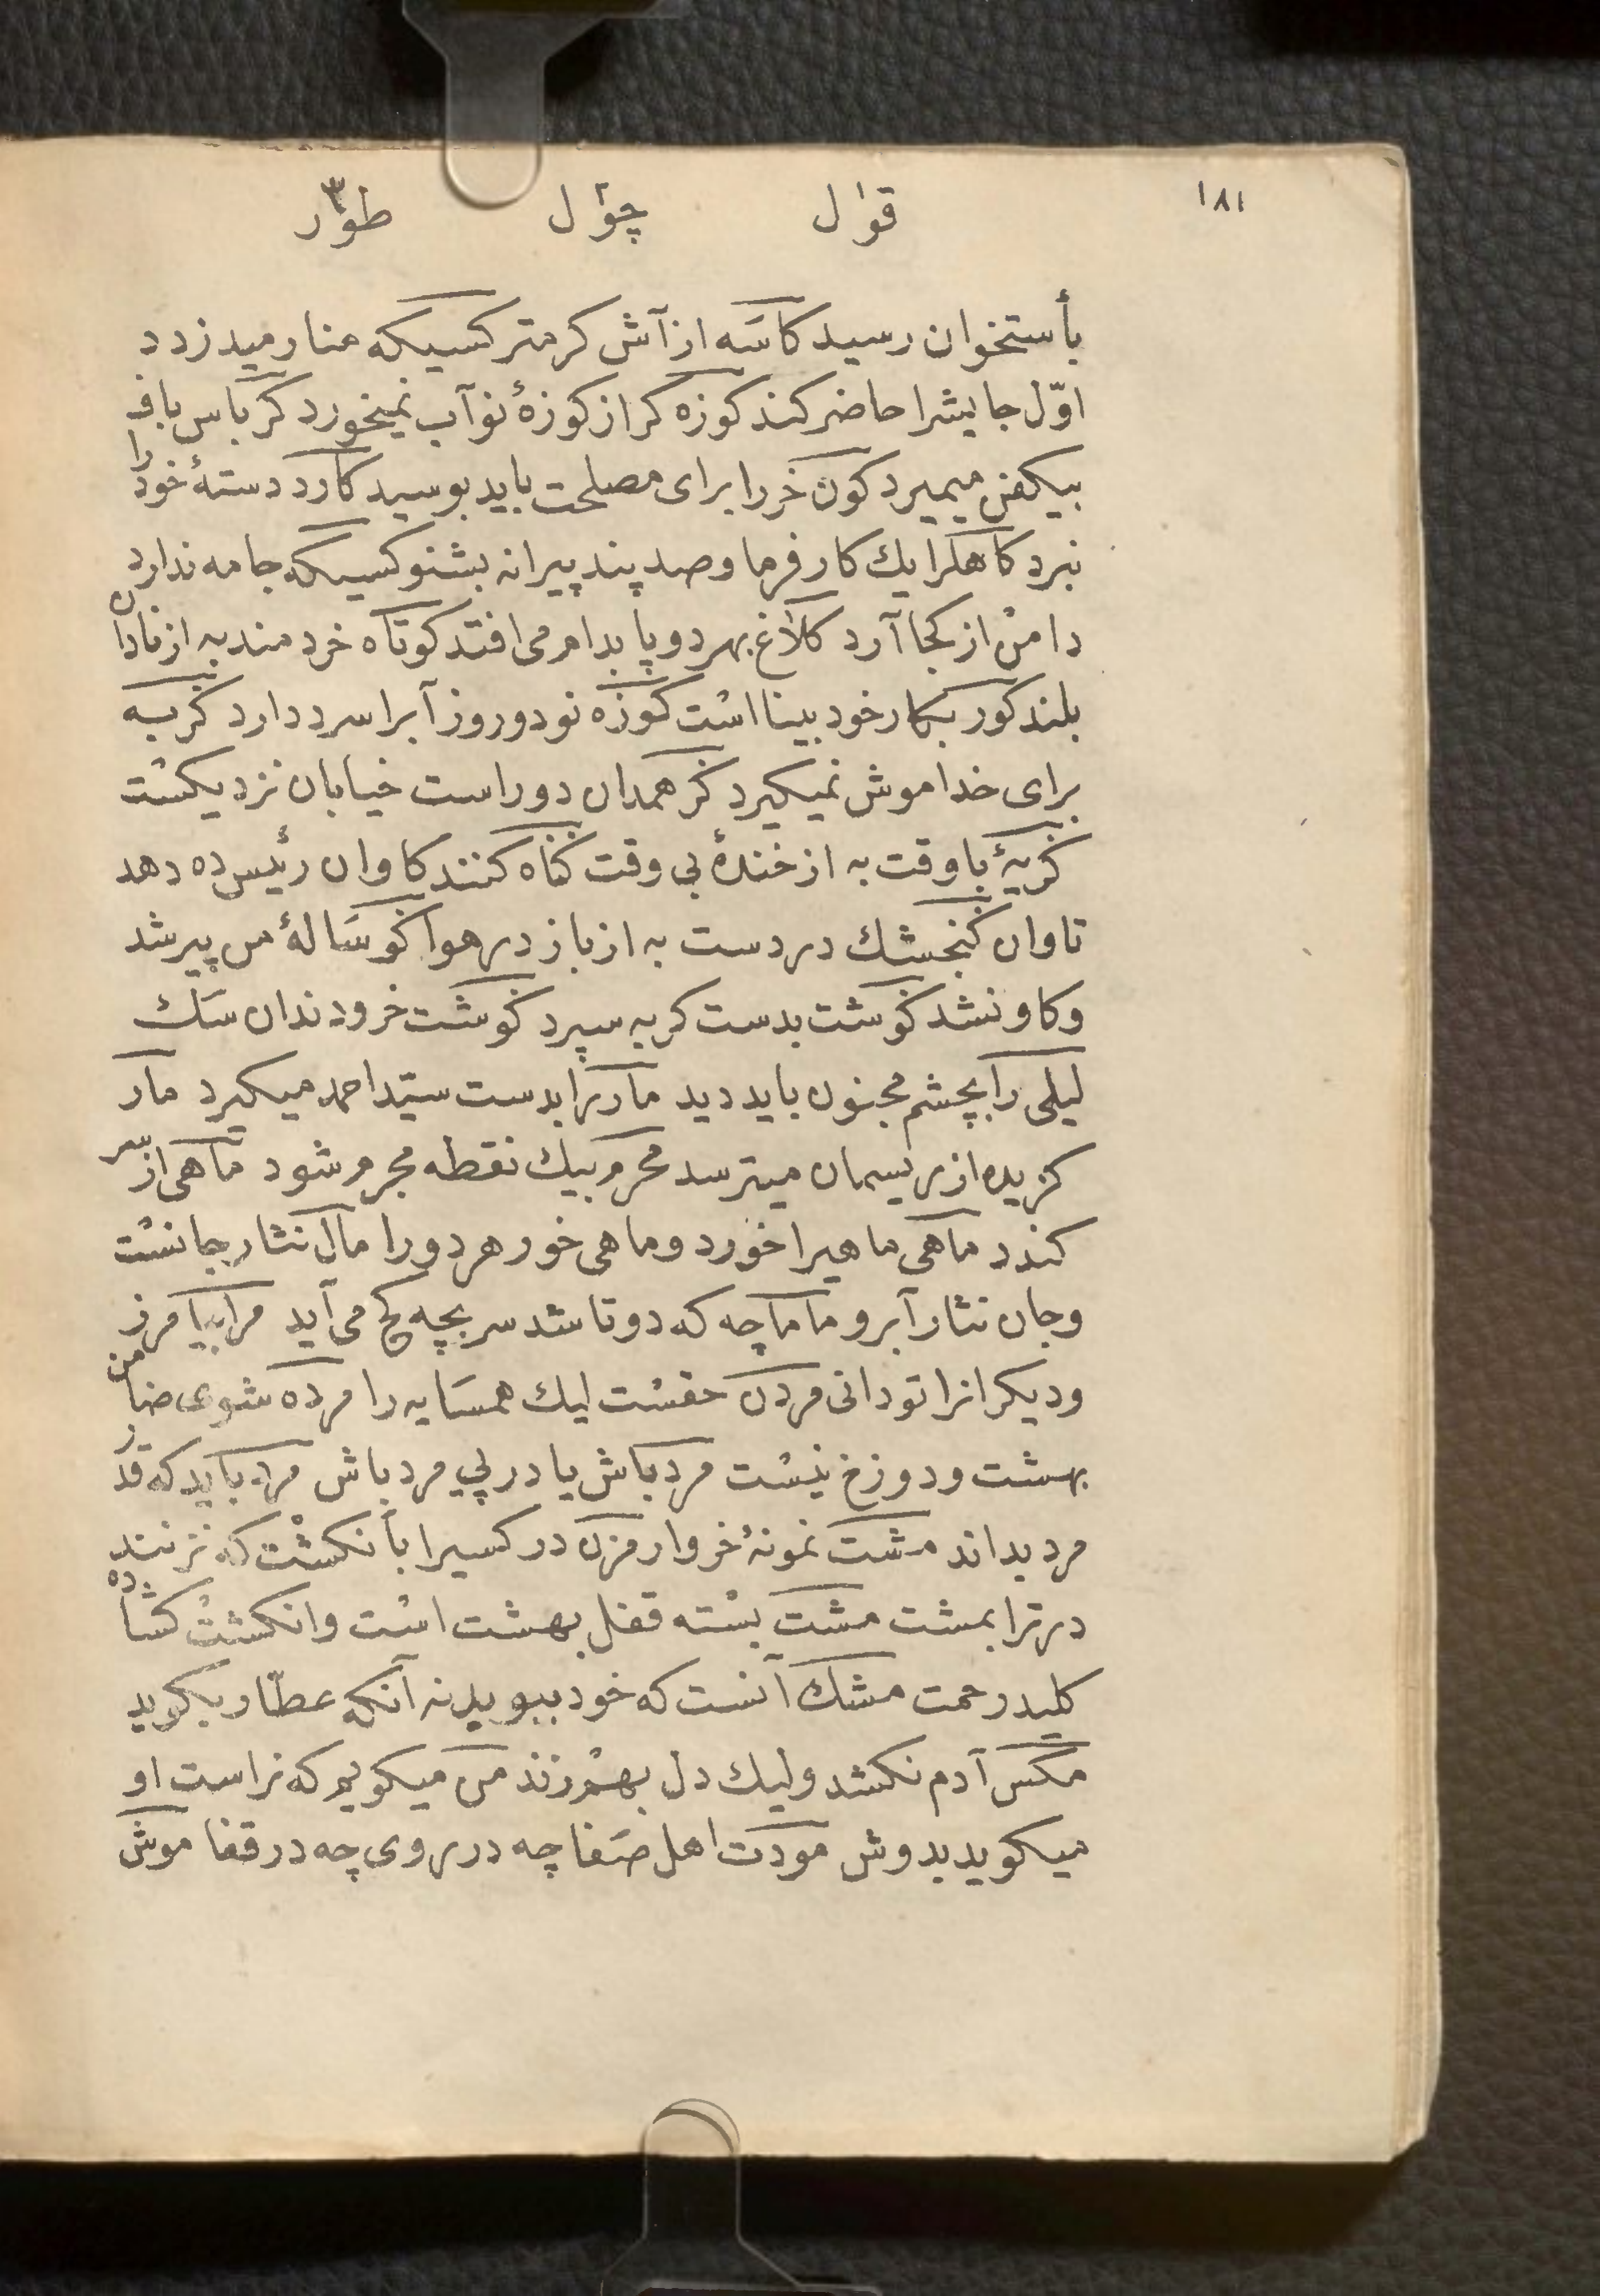 ١٨١
قوٰل چوٰل طوٰر
بأستخوان رسید کاسَه از آش کرمتر کسیکه منار میدزدد
اوّل جایشرا حاضر کند کوزه کر از کوزهٔ نو آب نمیخورد کرباس باف
بیکفن میمیرد کون خر را برای مصلحت باید بوسید کارد دستهٔ خود را
نبرد کاهلرا یك کار فرما و صد پند پیرانه بشنو کسیکه جامه ندارد
دامن از کجا آرد کلاغ بهر دو پا بدام می افتد کوتاه خردمند به از نادان
بلند کور بکار خود بینا است کوزه نو دو روز آبرا سرد دارد کربه
برای خدا موش نمیکیرد کر همدان دور است خیابان نزدیکست
کریهٔ با وقت به از خندهٔ بی وقت کناه کنند کاوان رئیس ده دهد
تاوان کنجشك در دست به از باز در هوا کوسَالهٔ من پیر شد
و کاو نشد کوشت بدست کربه سپرد کوشت خر و دندان سَك
لیلی را بچشم مجنون باید دید مار را بدست سیّد احمد میکیرد مار
کزیده از ریسمان میترسد محرم بیك نقطه مجرم شود ماهی از سر
کندد ماهی ماهیرا خورد و ماهی خور هر دو را مال نثار جانست
و جان نثار آبرو ماماچه که دو تا شد سر بچه کج می آید مرا بیامرز
و دیکرانرا تو دانی مردن حقست لیك همسَایه را مرده شوی ضامن
بهشت و دوزخ نیست مرد باش یا در پی مرد باش مرد باید که قدر
مرد بداند مشت نمونهٔ خروار مزن در کسیرا بأنکشت که نزنند
در ترا بمشت مشت بسته قفل بهشت است و انکشت کشاده
کلید رحمت مشك آنست که خود ببوید نه آنکه عطّار بکوید
مکس آدم نکشد ولیك دل بهم زند من میکویم که نر است او
میکوید بدوش مودّت اهل صَفا چه در روی چه در قفا موش